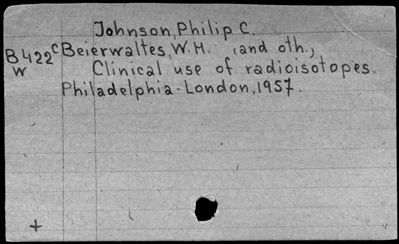 Johnson, Philip C.
B422c Beierwaltes, W.H. (and oth.,
W Clinical use of radioisotopes.
Philadelphia-London, 1957.
+